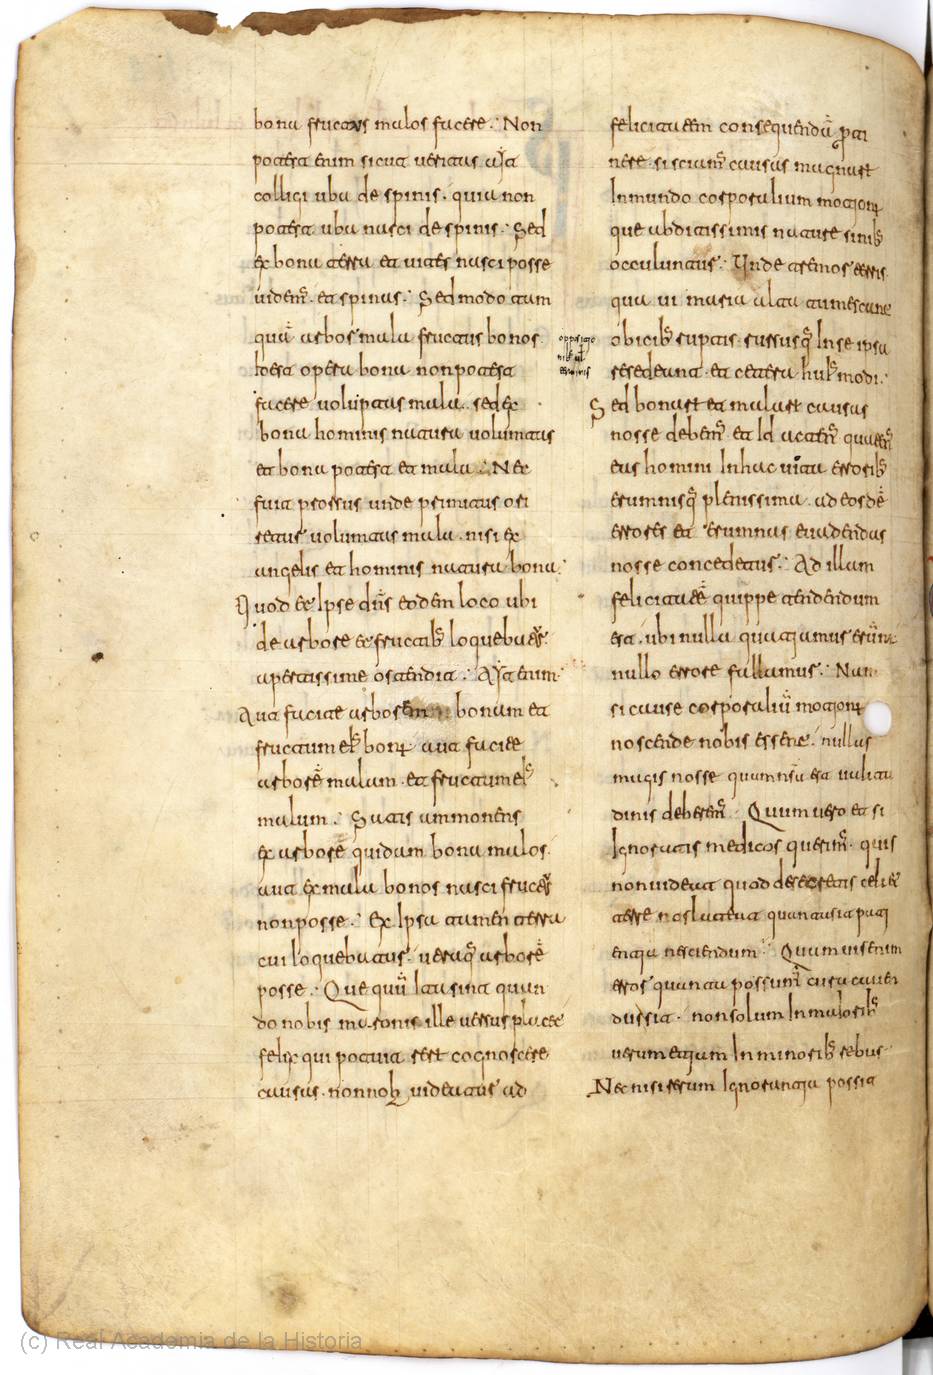 bona fructus malos facere. Non
poterat enim sicut ueritas ait
colligi uba de spinis. quia non
poterat uba nasci de spinis. Sed
ex bona terra et uites nasci posse
uidem(us). et spinas. Sed modo tam
qua(m) arbor mala fructus bonos
id est opera bona non poterat
facere uoluntas mala. sed ex
bona hominis natura uoluntas
et bona poterat et mala. Nec
fuit prorsus unde primitus ori
retur uoluntas mala. nisi ex
angelis et hominis natura bona.
Quod et Ipse dn̄s eodem loco ubi
de arbore et fructib(us) loquebat(ur)
apertissime ostendit. Ait enim
Aut facite arborem bonam et
fructum ei(us) bon(um) aut facite
arbore(m) malum. et fructum ei(us)
malum. Satis ammonens
ex arbore quidam bona malos.
aut ex mala bonos nasci fruct(us)
non posse. Ex Ipsa tamen terra
cui loquebatur. utraq(ue) arbore(m)
posse. Que quu(m) Ita sint quan
do nobis maronis ille uersus placet
felix qui potuit rer(um) cognoscere
causas. non nob(is) uideatur ad
felicitatem consequenda(m) p(er)ti
nere. si sciam(us) causas magnas
In mundo corporalium motion(um)
que abditissimis nature sinib(us)
occuluntur. Unde tremor terris
qua ui maria alta tumescant
obicib(us) ruptis. rursusq(ue) In se ipsa
resedeant. et cetera hui(us)modi.
oppositio
nib(us) uel
terminis
Sed bonar(um) et malar(um) causas
nosse debem(us). et Id acten(us) quaten(us)
eas homini In hac uita errorib(us)
erumnisq(ue) plenissima. ad eosde(m)
errores et erumnas euadendas
nosse concedetur. Ad illam
felicitate(m) quippe tendendum
est. ubi nulla quatiamur erumna
nullo errore fallamur. Nam
si cause corporaliu(m) motion(um)
noscende nobis essent. nullas
magis nosse quam nr̄a est ualitu
dinis deberem(us). Quum uero et si
Ignoratis medicos querim(us). quis
non uideat quod de secretis celi et
terre nos lateat quanta sit pati
entia nesciendum. Quamuis enim
error quanta possum(us) cura cauen
dus sit. non solum In maiorib(us)
uerum etiam In minorib(us) rebus
Nec nisi rerum Ignorantia possit